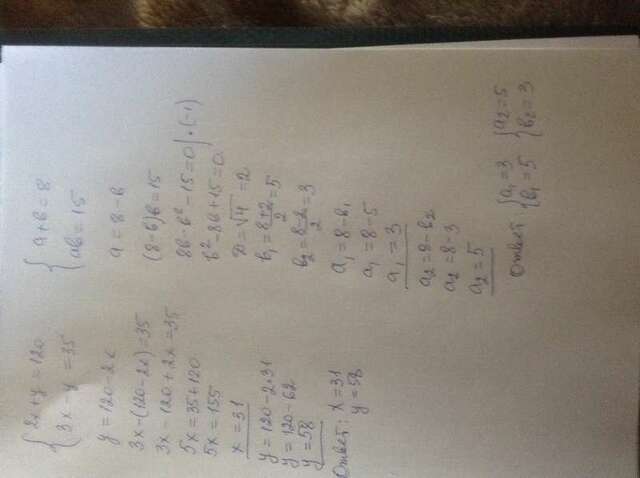 { 2x + y = 120
3x - y = 35
y = 120 - 2x
3x - (120 - 2x) = 35
3x - 120 + 2x = 35
5x = 35 + 120
5x = 155
x = 31
y = 120 - 2·31
y = 120 - 62
y = 58
Ответ: x = 31
y = 58
{ a + b = 8
ab = 15
a = 8 - b
(8 - b)b = 15
8b - b² - 15 = 0 | · (-1)
b² - 8b + 15 = 0
D = √4 = 2
b₁ = (8+2)/2 = 5
b₂ = (8-2)/2 = 3
a₁ = 8 - b₁
a₁ = 8 - 5
a₁ = 3
a₂ = 8 - b₂
a₂ = 8 - 3
a₂ = 5
Ответ { a₁ = 3 { a₂ = 5
b₁ = 5 b₂ = 3